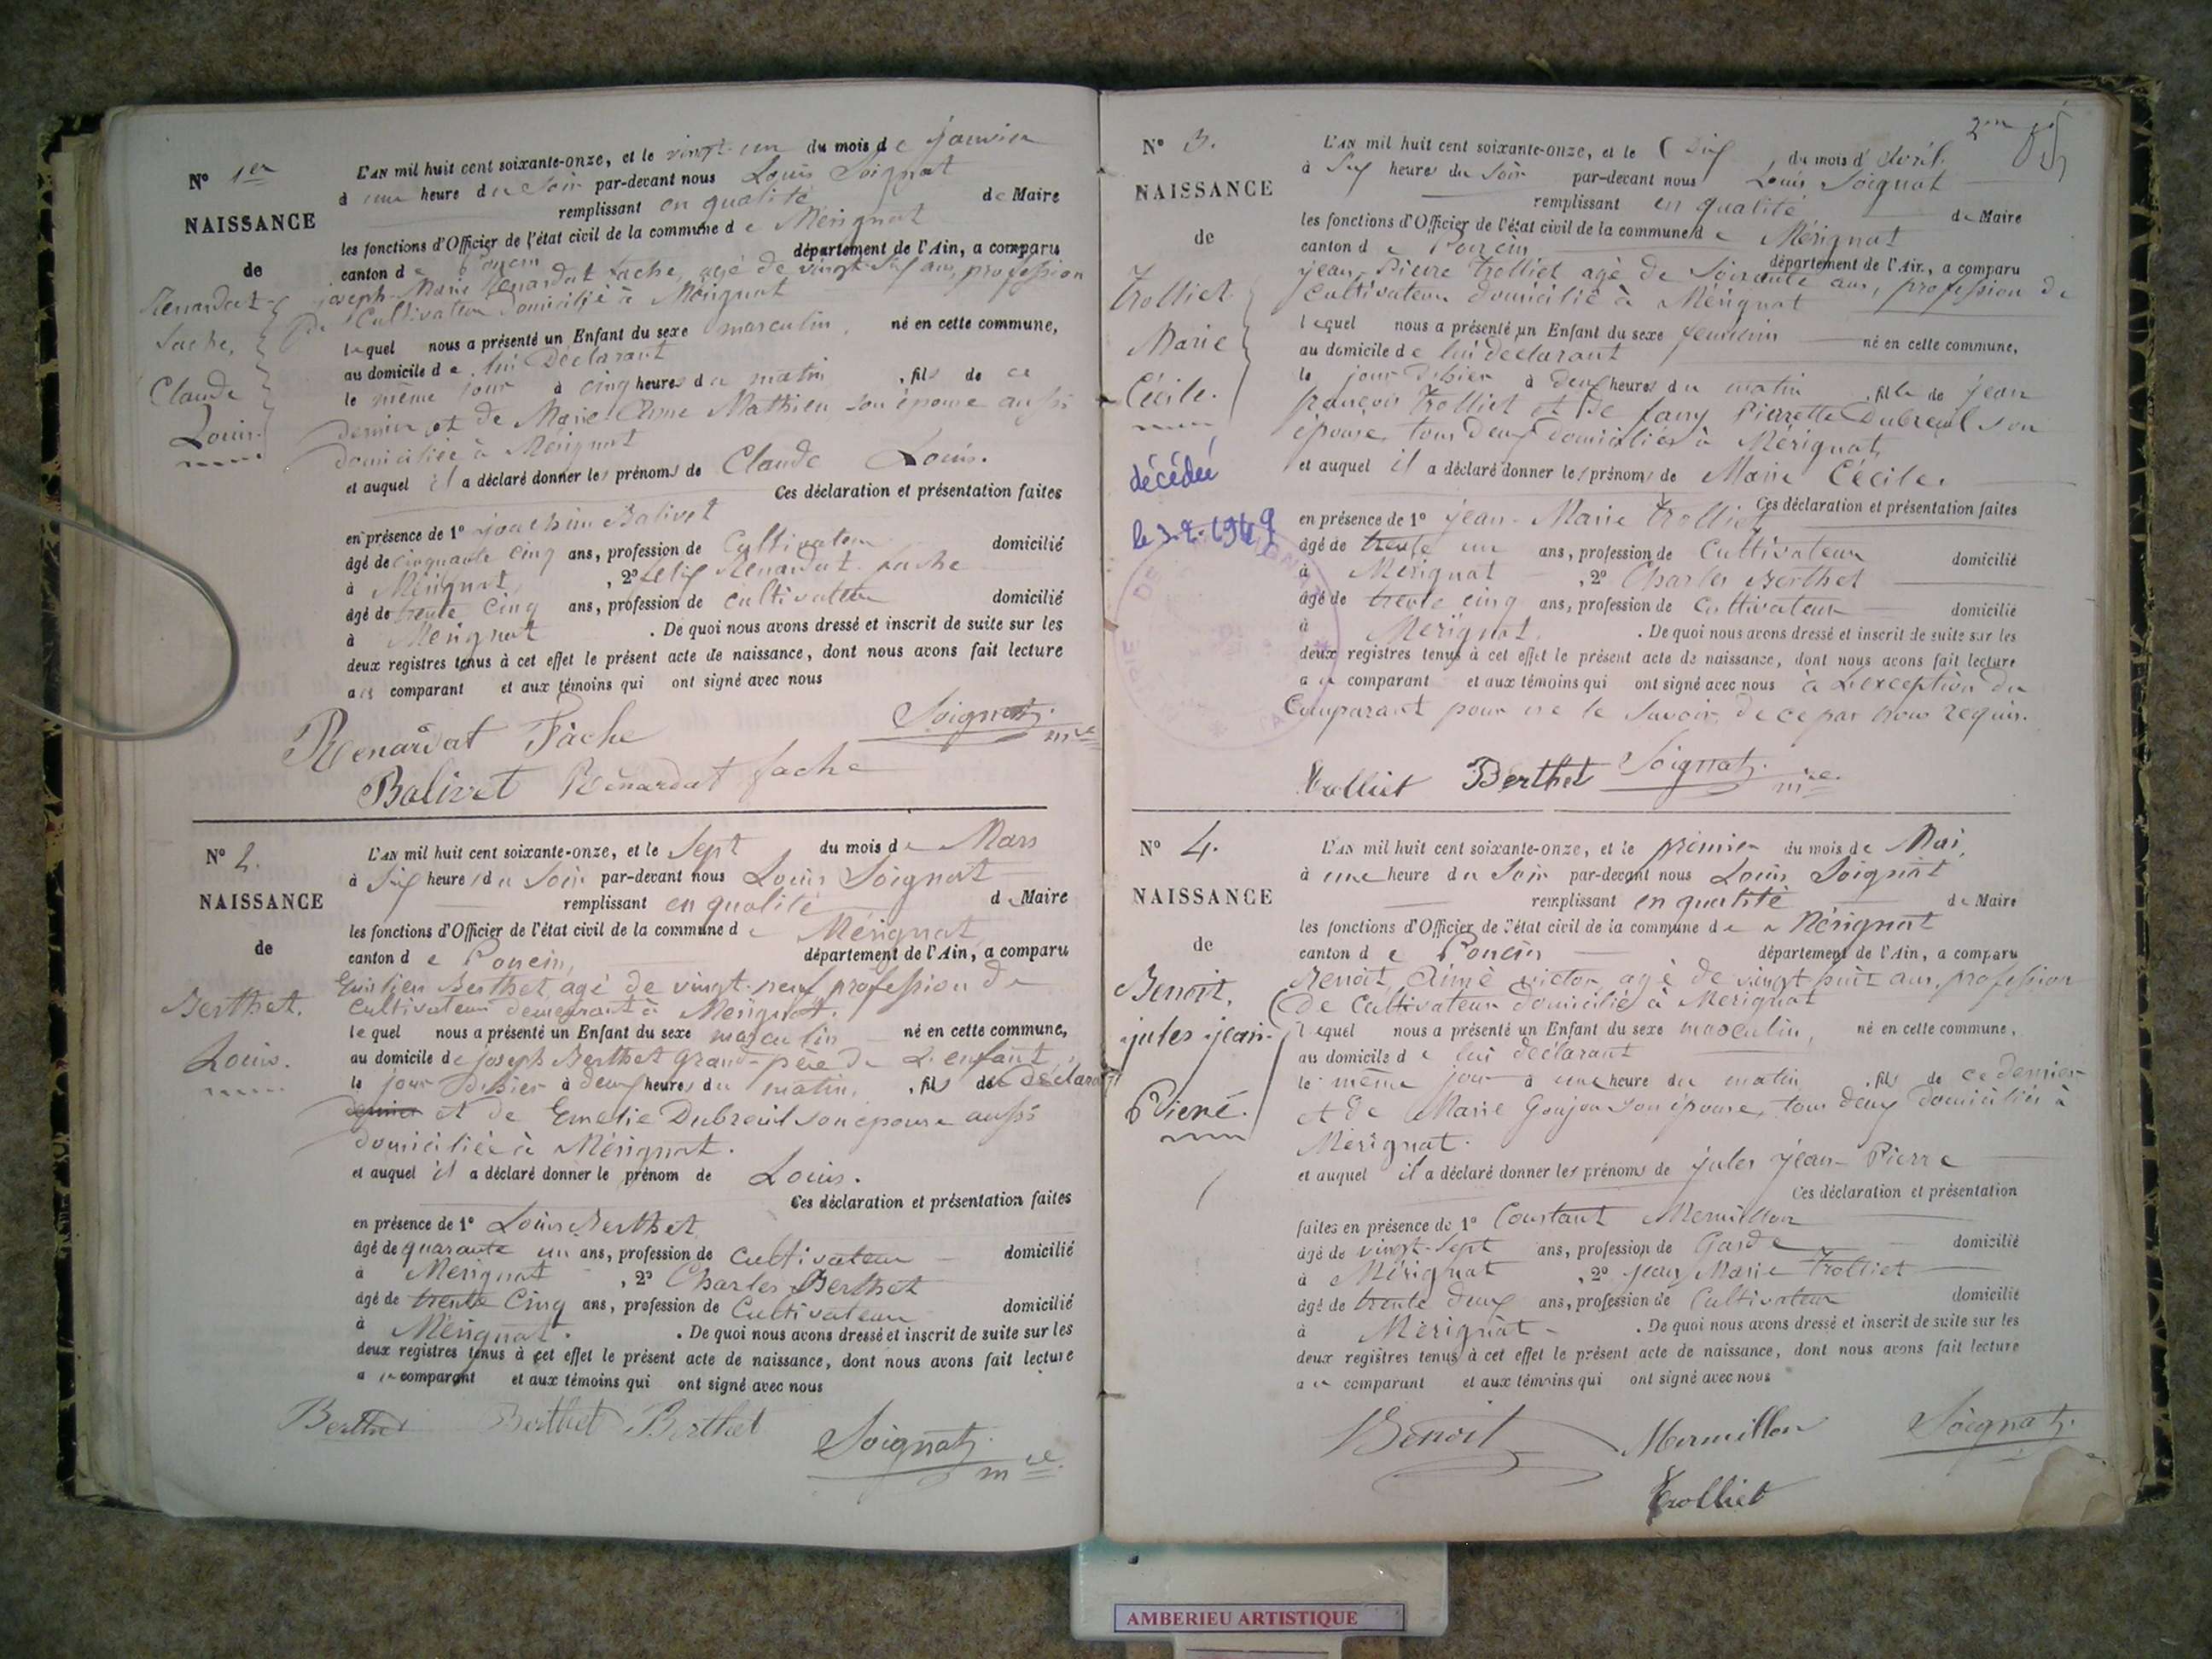 N° 1er
NAISSANCE
de
Renardat-
Fache,
Claude
Louis.
L'AN mil huit cent soixante-onze, et le vingt-un du mois de janvier
à une heure du soir par-devant nous Louis Soignat
remplissant en qualité de Maire
les fonctions d'Officier de l'état civil de la commune de Mérignat
canton de Poncin département de l'Ain, a comparu
joseph-Marie Renardat Fache, agé de vingt-six ans, profession
de Cultivateur domicilié à Mérignat
lequel nous a présenté un Enfant du sexe masculin, né en cette commune,
au domicile de lui Déclarant
le même jour à cinq heures du matin, fils de ce
dernier et de Marie-Anne Mathieu son épouse aussi
domiciliée à Mérignat
et auquel il a déclaré donner les prénoms de Claude Louis.
Ces déclaration et présentation faites
en présence de 1° joachim Balivet
âgé de cinquante cinq ans, profession de Cultivateur domicilié
à Mérignat, 2° Renardat-fache
âgé de trente cinq ans, profession de cultivateur domicilié
à Mérignat . De quoi nous avons dressé et inscrit de suite sur les
deux registres tenus à cet effet le présent acte de naissance, dont nous avons fait lecture
au comparant et aux témoins qui ont signé avec nous
Renardat Fâche Soignat, mre
Balivet Renardat fache
N° 2.
NAISSANCE
de
Berthet.
Louis.
L'AN mil huit cent soixante-onze, et le Sept du mois de Mars
à Six heures du Soir par-devant nous Louis Soignat
remplissant en qualité de Maire
les fonctions d'Officier de l'état civil de la commune de Mérignat
canton de Poncin, département de l'Ain, a comparu
Emilien Berthet, agé de vingt-neuf profession de
Cultivateur demeurant à Mérignat.
lequel nous a présenté un Enfant du sexe masculin né en cette commune,
au domicile de joseph Berthet grand-père de L'enfant,
le jour d'hier à deux heures du matin, fils de Déclarant
dernier et de Emelie Dubreuil son épouse aussi
domiciliée à Mérignat.
et auquel il a déclaré donner le prénom de Louis.
Ces déclaration et présentation faites
en présence de 1° Louis Berthet
âgé de quarante un ans, profession de cultivateur domicilié
à Mérignat , 2° Charles Berthet
âgé de trente Cinq ans, profession de Cultivateur domicilié
à Mérignat. . De quoi nous avons dressé et inscrit de suite sur les
deux registres tenus à cet effet le présent acte de naissance, dont nous avons fait lecture
au comparant et aux témoins qui ont signé avec nous
Berthet Berthet Berthet Soignat, mre
2me
N° 3.
NAISSANCE
de
Trolliet
Marie
Cécile.
décédée
le 3.2.1949
L'AN mil huit cent soixante-onze, et le Six du mois d'Avril
à Six heures du Soir par-devant nous Louis Soignat
remplissant en qualité de Maire
les fonctions d'Officier de l'état civil de la commune de Mérignat
canton de Poncin département de l'Ain, a comparu
jean-Pierre Trolliet agé de Soixante ans, profession de
cultivateur domicilié à Mérignat
lequel nous a présenté un Enfant du sexe feminin né en cette commune,
au domicile de lui déclarant
le jour d'hier à deux heures du matin, fille de jean
françois Trolliet et de fany Pierrette Dubreuil son
épouse, tous deux domiciliés à Mérignat,
et auquel il a déclaré donner les prénoms de Marie Cécile.
Ces déclaration et présentation faites
en présence de 1° jean-Marie Trolliet
âgé de trente un ans, profession de Cultivateur domicilié
à Mérignat , 2° Charles Berthet
âgé de trente cinq ans, profession de Cultivateur domicilié
à Mérignat. . De quoi nous avons dressé et inscrit de suite sur les
deux registres tenus à cet effet le présent acte de naissance, dont nous avons fait lecture
au comparant et aux témoins qui ont signé avec nous à L'exception du
Comparant pour ne le Savoir, de ce par nous requis.
Trolliet Berthet Soignat, mre
N° 4.
NAISSANCE
de
Benoit,
jules jean-
Pierre.
L'AN mil huit cent soixante-onze, et le premier du mois de Mai,
à une heure du Soir par-devant nous Louis Soignat
remplissant en qualité de Maire
les fonctions d'Officier de l'état civil de la commune de Mérignat
canton de Poncin département de l'Ain, a comparu
Benoit, Aimé victor, agé de vingt huit ans, profession
de Cultivateur domicilié à Mérignat
lequel nous a présenté un Enfant du sexe masculin, né en cette commune,
au domicile de lui déclarant
le même jour à une heure du matin, fils de ce dernier
et de Marie Goujon son épouse, tous deux domiciliés à
Mérignat.
et auquel il a déclaré donner les prénoms de jules jean-Pierre
Ces déclaration et présentation
faites en présence de 1° Constant Mermillon
âgé de vingt-sept ans, profession de Garde domicilié
à Mérignat , 2° jean Marie Trolliet
âgé de trente deux ans, profession de Cultivateur domicilié
à Mérignat - . De quoi nous avons dressé et inscrit de suite sur les
deux registres tenus à cet effet le présent acte de naissance, dont nous avons fait lecture
au comparant et aux témoins qui ont signé avec nous
Benoit Mermillon Soignat,
Trolliet
AMBERIEU ARTISTIQUE